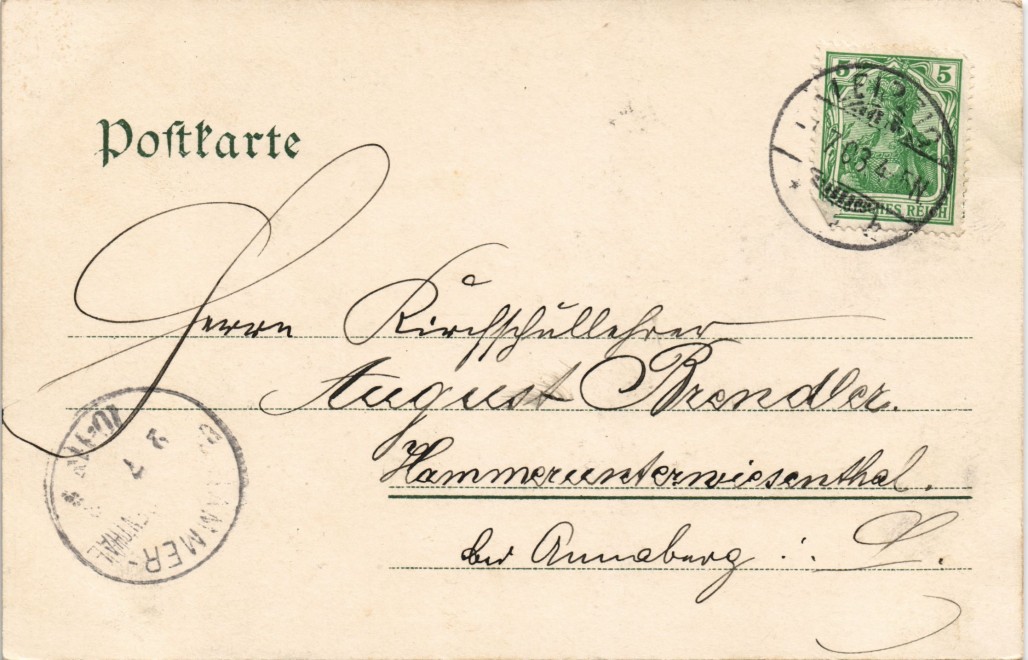 Postkarte
5 5
LEIPZIG
7.03.4
REICH
Herrn Kirchschullehrer
August Brendler.
Hammerunterwiesenthal.
bei Annaberg i. S.
HAMMER-
2 7